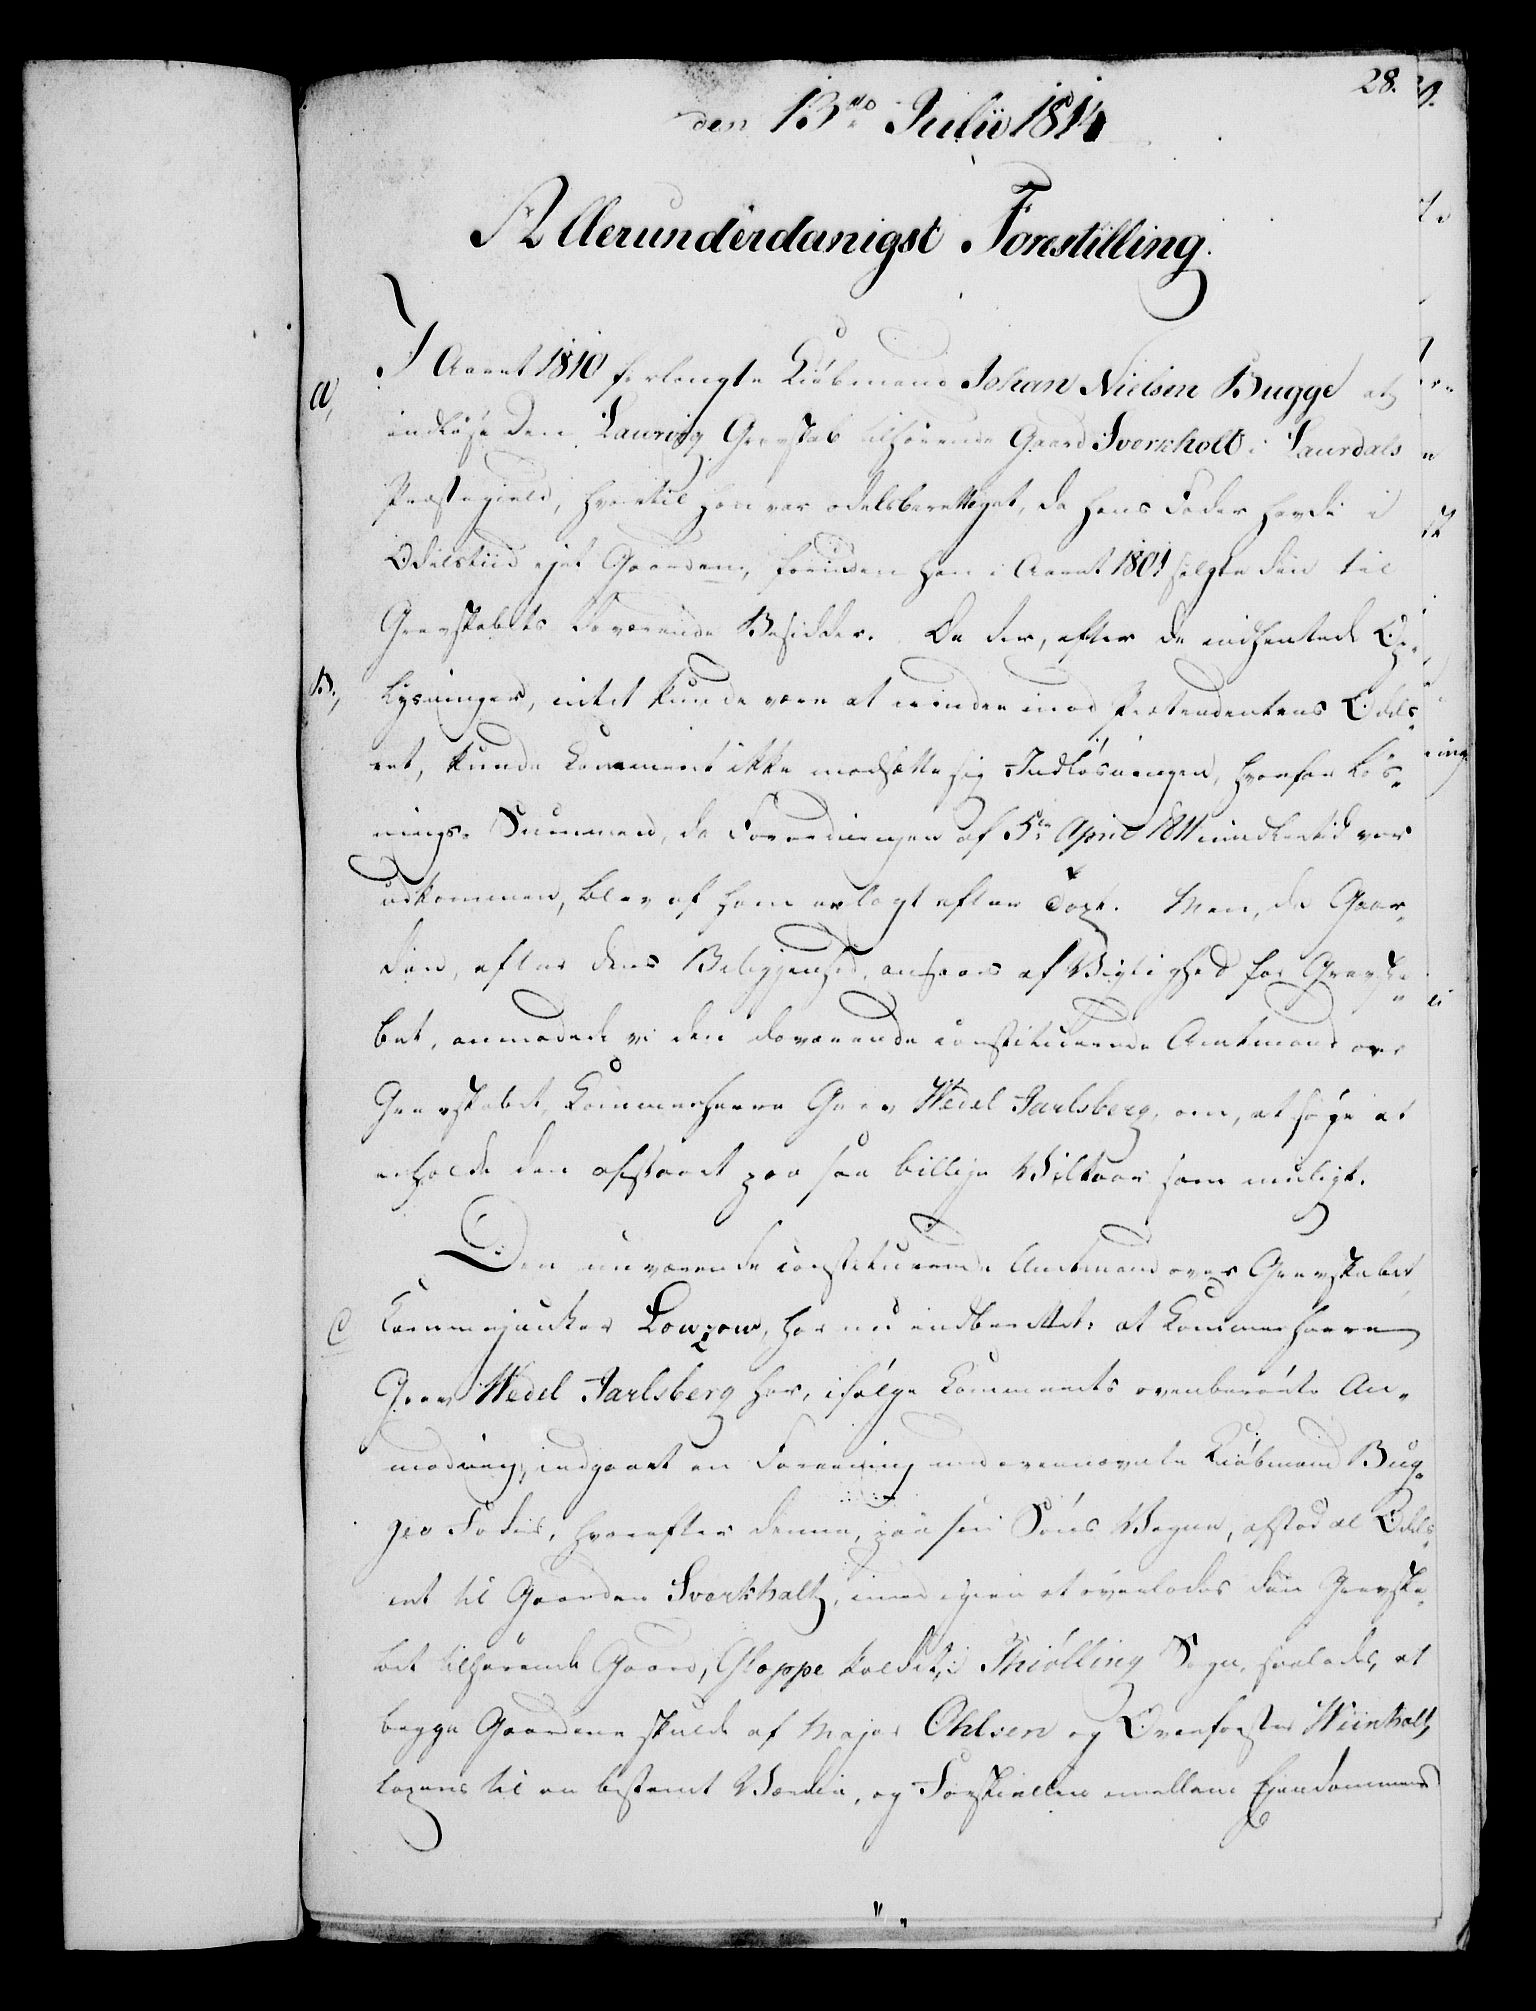 28.
den 13de Julii 1814
Allerunderdanigst Forestilling.
I Aaret 1810 forlangte Kiøbmand Johan Nielsen Bugge at
a, indløse den Laurvig Grevskab tilhørende Gaard Sverkholt i Laurdals
Præstegield, hvortil han var odelsberettiget, da hans Fader havde i
Odelstiid ejet Gaarden, forinden han i Aaret 1801 solgte den til
Grevskabets daværende Besidder. Da der, efter de indhentede Op-
B, lysninger, intet kunde være at erindre mod Prætendentens Odels-
ret, kunde Kammeret ikke modsætte sig Indløsningen, hvorfor Løs-
nings-Summen, da Forordningen af 5te April 1811 imidlertid var
udkommen, blev af ham erlagt efter Taxt. Men, da Gaar-
den, efter dens Beliggenhed, ansaaes af Vigtighed for Grevska-
bet, anmodede vi den daværende constituerede Amtmand over
Grevskabet, Kammerherre Grev Wedel Jarlsberg, om, at søge at
erholde den afstaaet paa saa billige Vilkaar som muligt.
Den nuværende constituerede Amtmand over Grevskabet,
C Kammerjunker Lowzow, har nu indberettet: at Kammerherre
Grev Wedel Jarlsberg har, ifølge Kammerets ovenberørte An-
modning, indgaaet en Forening med ovennævnte Kiøbmand Bug-
ges Fader, hvorefter denne, paa sin Søns Vegne, afstod al Odels-
ret til Gaarden Sverkholt, imod igien at overlades den Grevska-
bet tilhørende Gaard, Gloppe kaldet, i Thiølling Sogn, saaledes, at
begge Gaardene skulde af Major Ohlsen og Overforster Wiinholt,
taxeres til en bestemt Værdie, og Forskiellen imellem Ejendommens